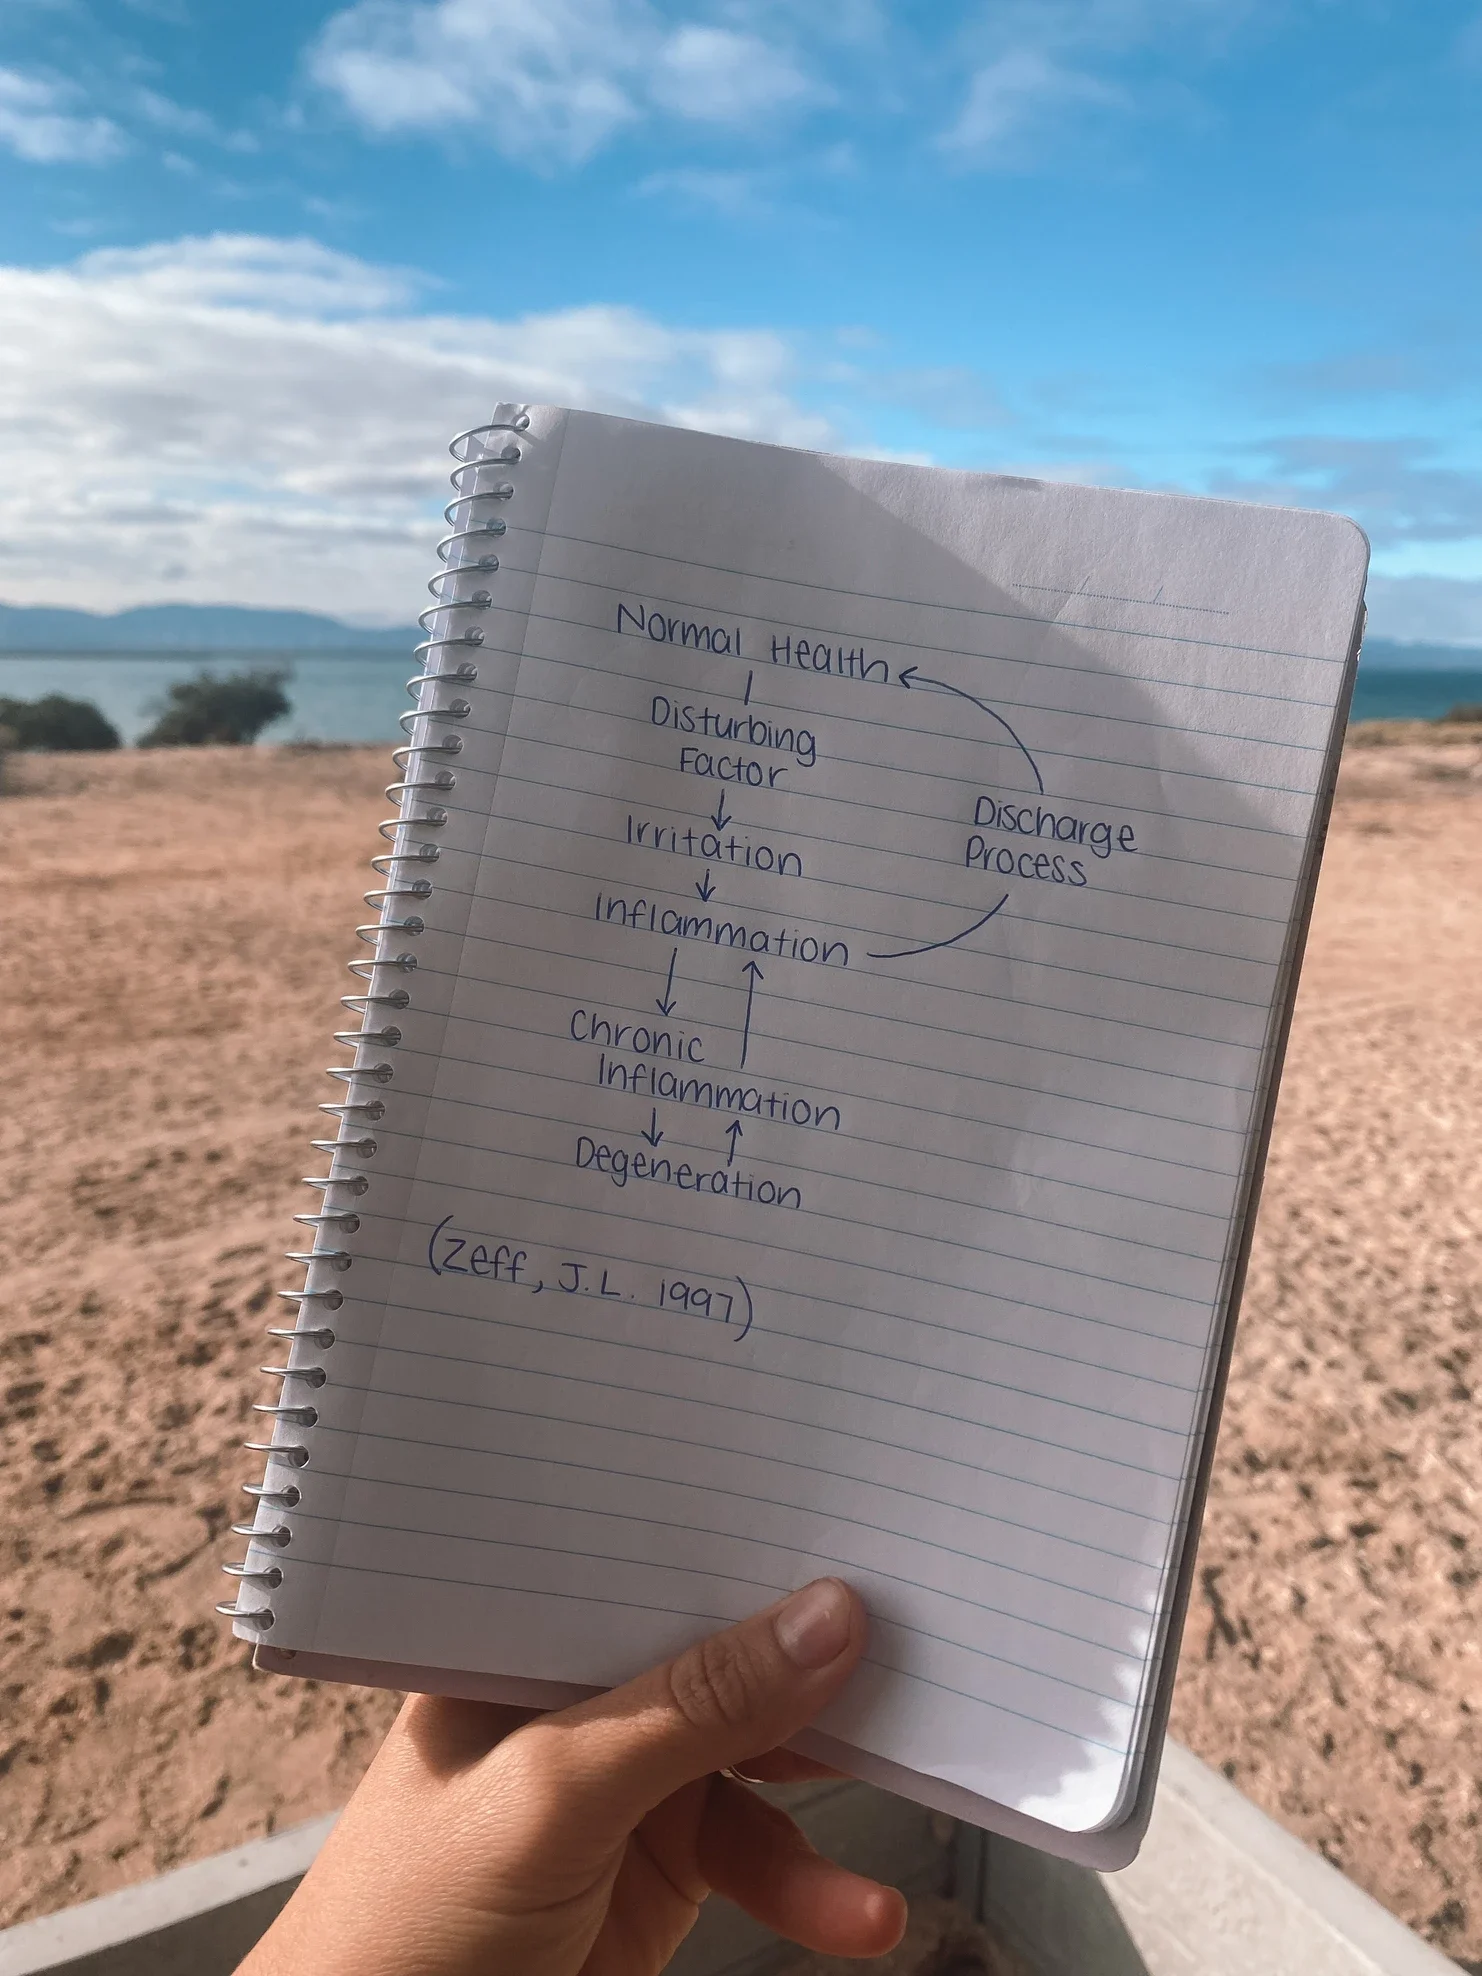 Normal Health
Disturbing
Factor
Irritation
Inflammation
Discharge
Process
Chronic
Inflammation
Degeneration
(Zeff, J.L. 1997)